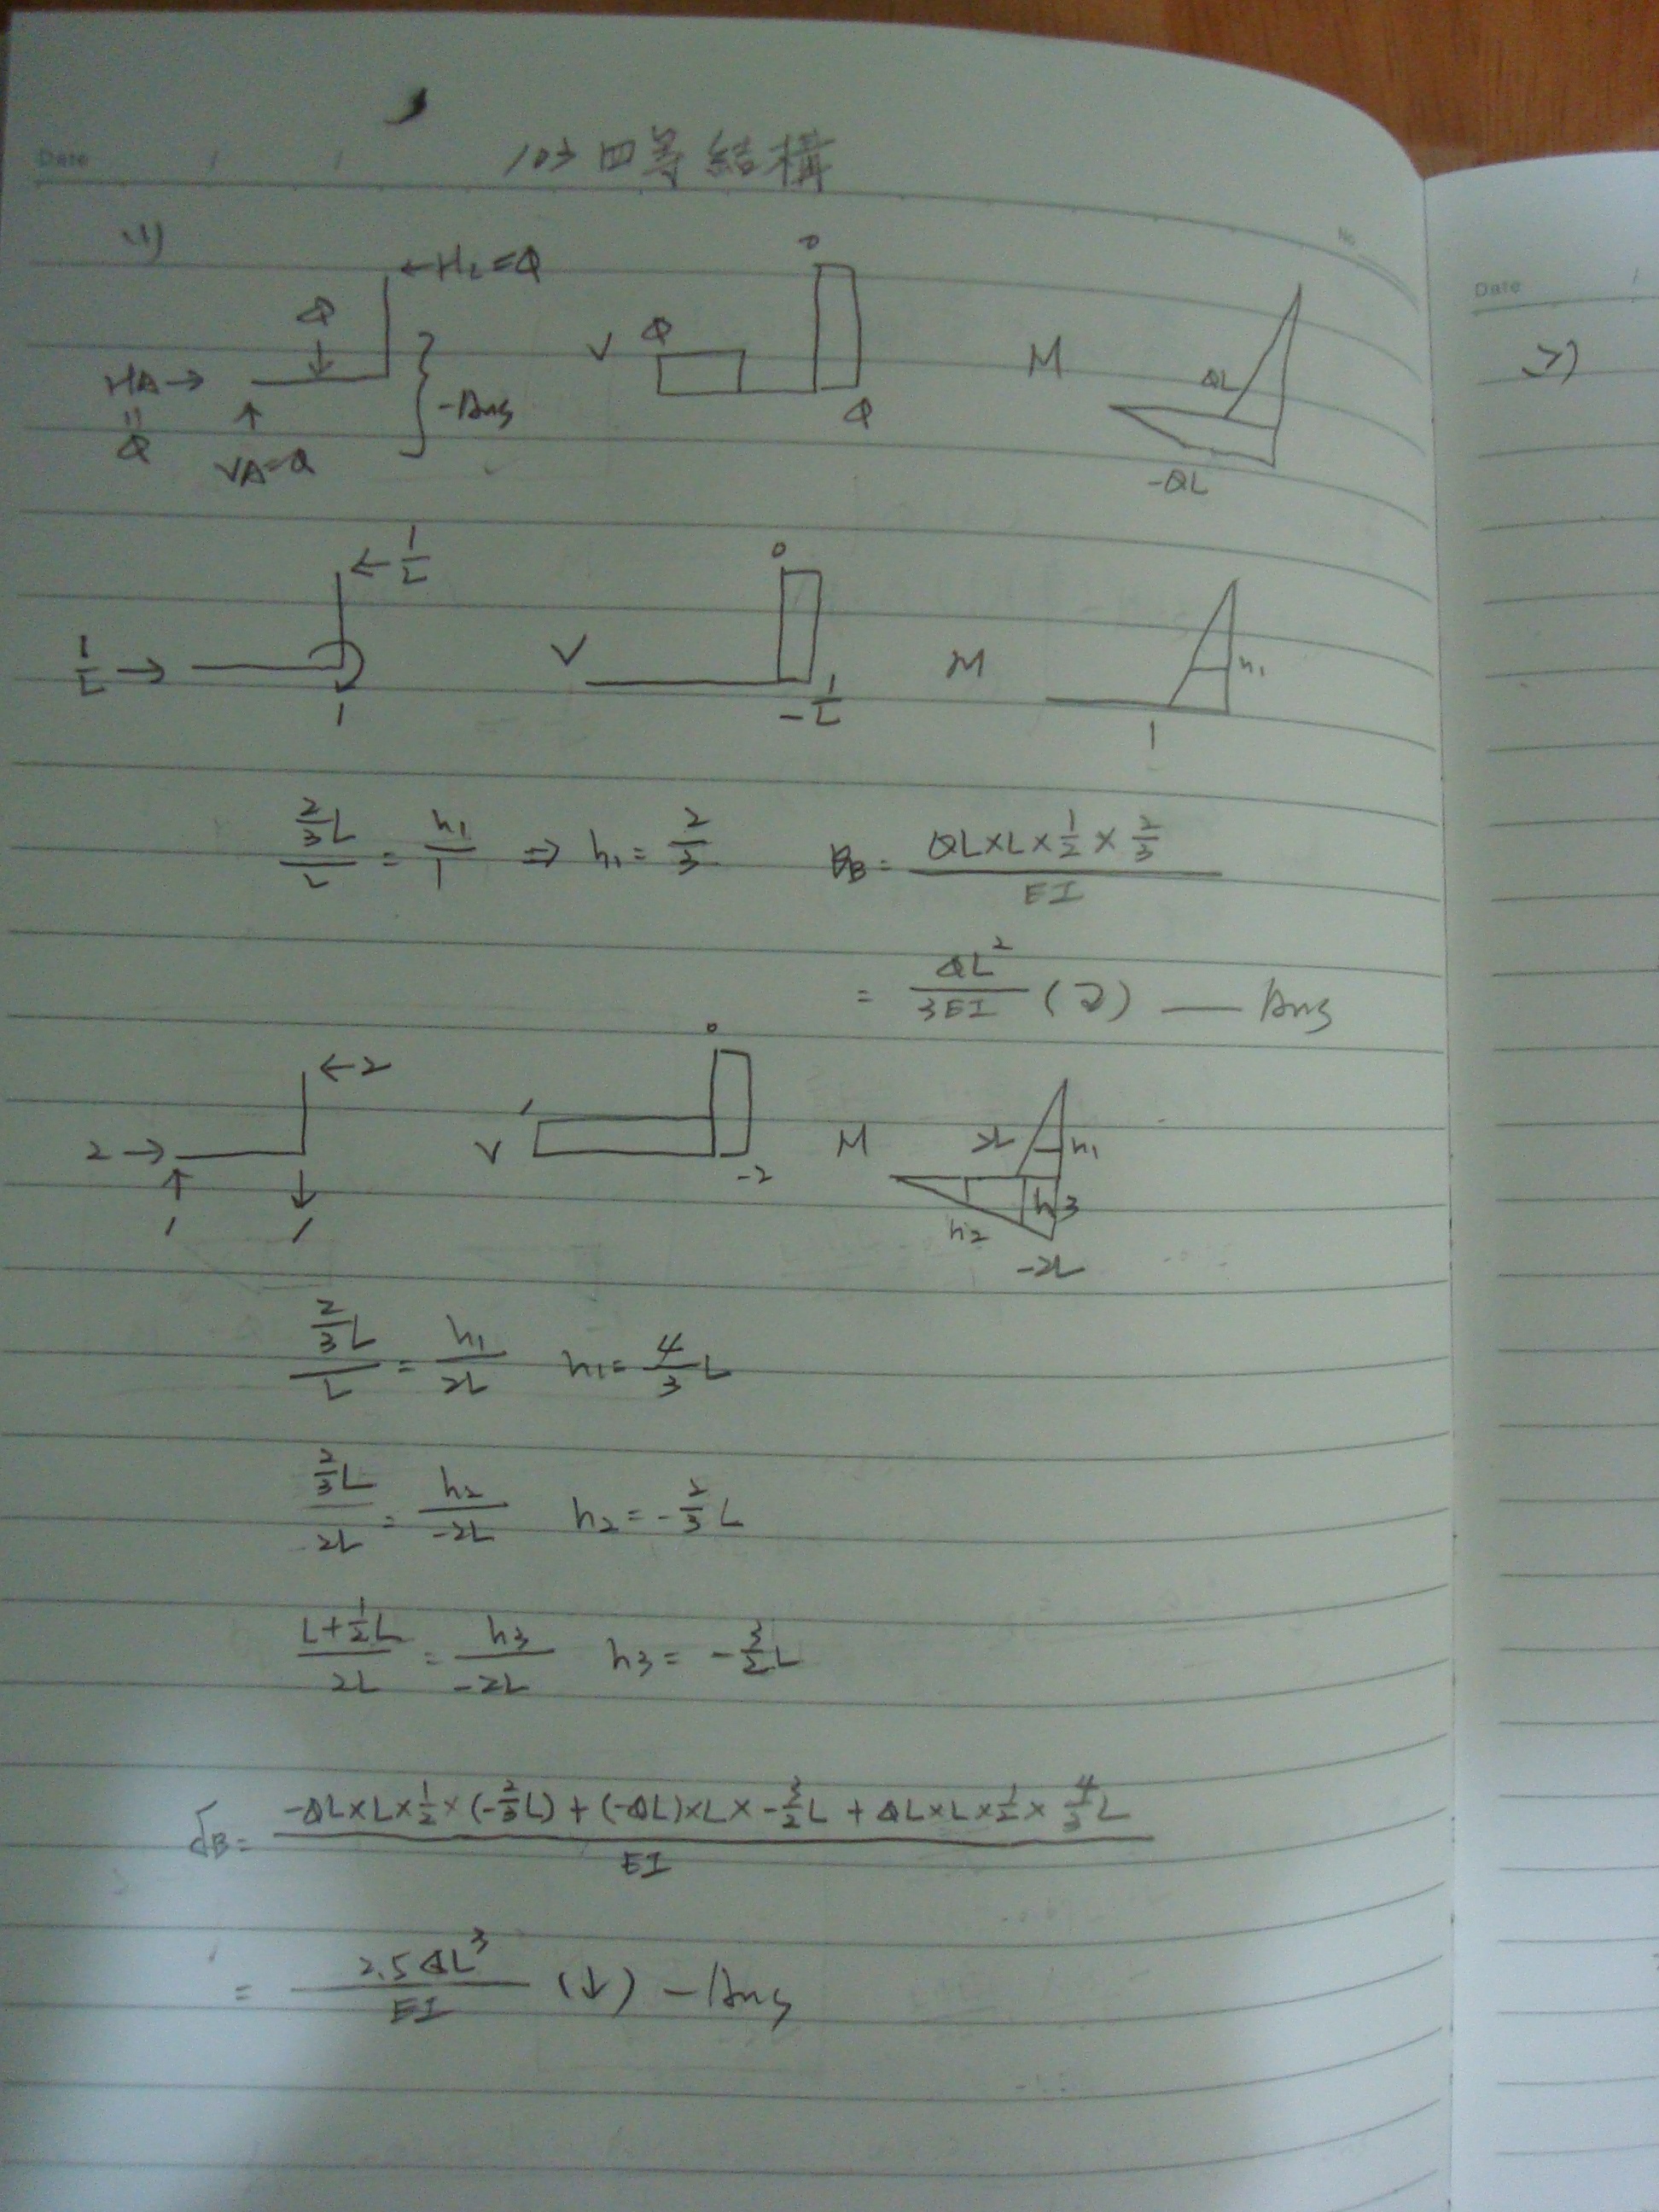 Date
103四等結構
No
(1)
←H2=Q
Q
HA→
=
Q
VA=Q
-Ans
V
Q
0
Q
M
QL
-QL
←1/L
1/L→
1
V
0
-1/L
M
h1
1
(2/3L)/L = h1/1 ⇒ h1 = 2/3
θB = (QL×L×1/2×2/3)/EI
= QL²/3EI (↻) — Ans
←2
2→
1
1
V
1
0
-2
M
2L
h1
h2
h3
-2L
(2/3L)/L = h1/2L h1 = 4/3L
(2/3L)/2L = h2/-2L h2 = -2/3L
(L+1/2L)/2L = h3/-2L h3 = -3/2L
δB = (-QL×L×1/2×(-2/3L)+(-QL)×L×-3/2L+QL×L×1/2×4/3L)/EI
= 2.5QL³/EI (↓) -Ans
Date
2)